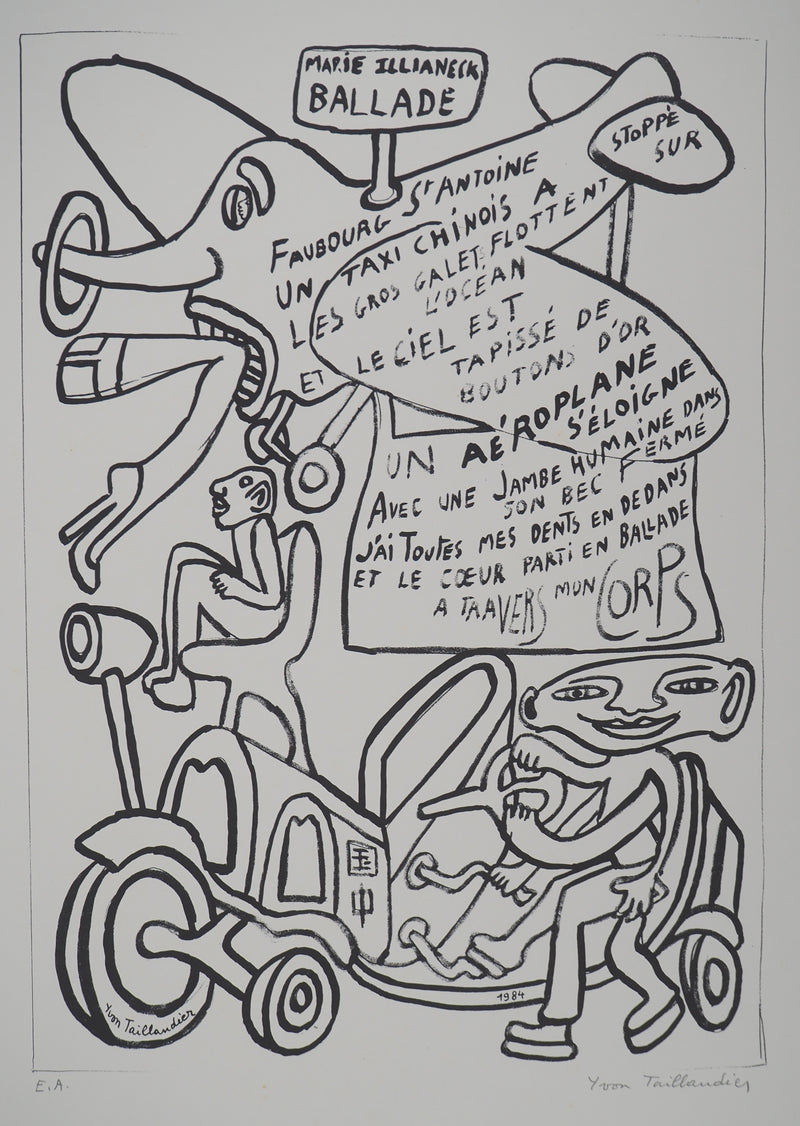 MARIE ILLIANECK
BALLADE
FAUBOURG St ANTOINE
UN TAXI CHINOIS A
STOPPÉ
SUR
LES GROS GALETS FLOTTENT
L'OCÉAN
ET LE CIEL EST
TAPISSÉ DE
BOUTONS D'OR
UN AÉROPLANE
S'ÉLOIGNE
AVEC UNE JAMBE HUMAINE DANS
SON BEC FERMÉ
J'AI TOUTES MES DENTS EN DEDANS
ET LE CŒUR PARTI EN BALLADE
A TRAVERS MON CORPS
国
中
1984
Yvon Taillandier
E.A.
Yvon Taillandier